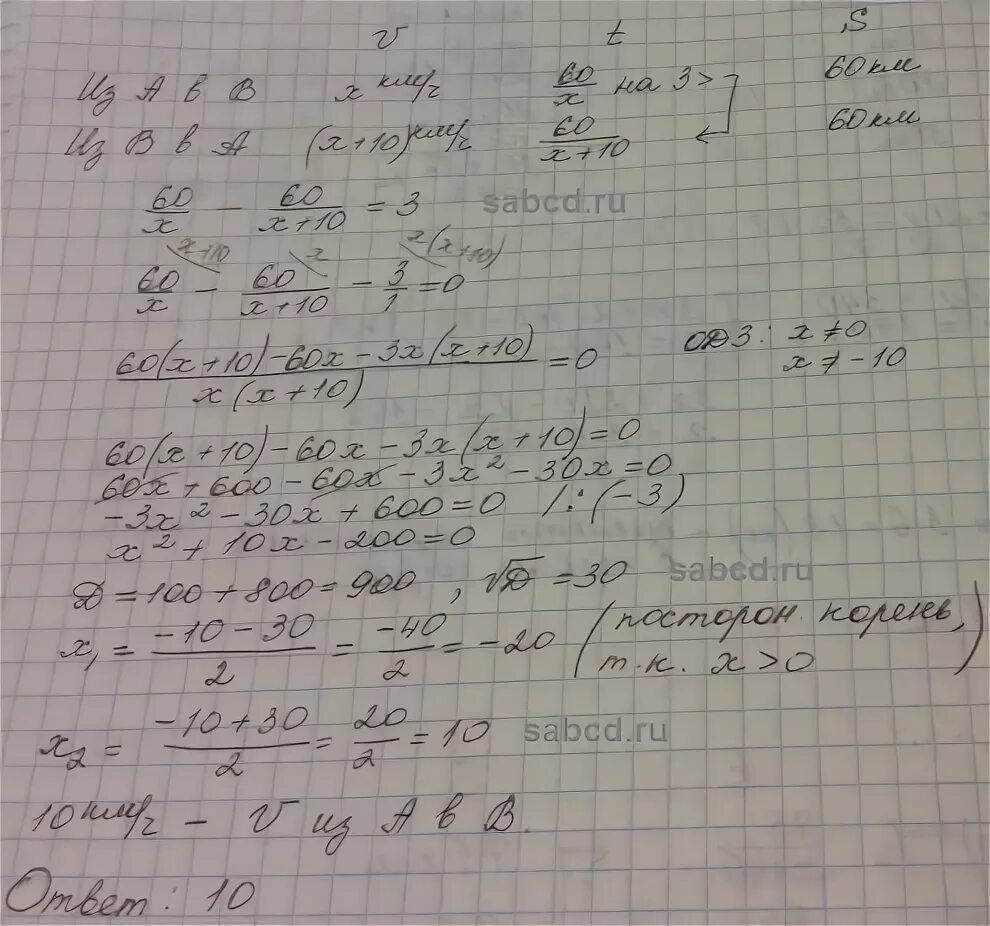 v t S
Из А в В x км/ч 60/x на 3 > 60 км
Из В в А (x+10) км/ч 60/(x+10) 60 км
60/x - 60/(x+10) = 3
sabcd.ru
x+10 x x(x+10)
60/x - 60/(x+10) - 3/1 = 0
(60(x+10)-60x-3x(x+10))/(x(x+10)) = 0 ОДЗ: x≠0
x≠-10
60(x+10)-60x-3x(x+10)=0
60x+600-60x-3x²-30x=0
-3x²-30x+600=0 /:(-3)
x²+10x-200=0
D=100+800=900, √D=30
sabcd.ru
x₁ = (-10-30)/2 = -40/2 = -20 (посторон. корень,
т.к. x>0)
x₂ = (-10+30)/2 = 20/2 = 10
sabcd.ru
10 км/ч - v из А в В.
Ответ: 10